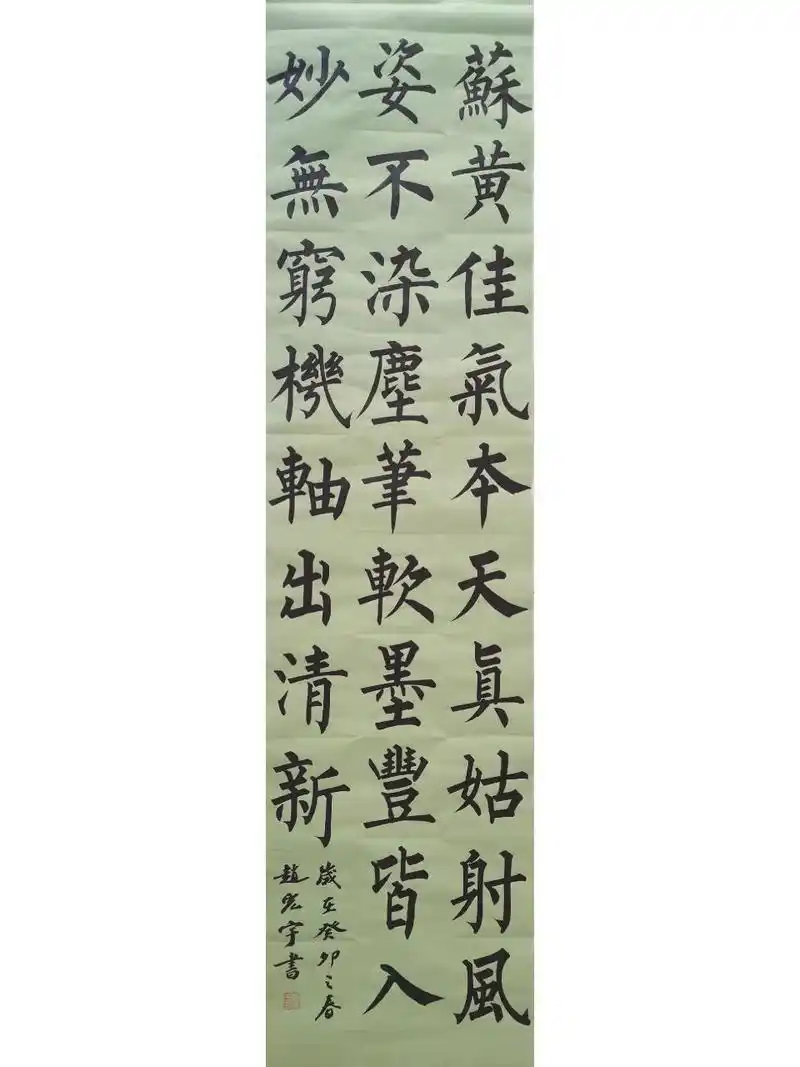 蘇黃佳氣本天眞姑射風
姿不染塵筆軟墨豐皆入
妙無窮機軸出清新
歲在癸卯之春
趙宏宇書